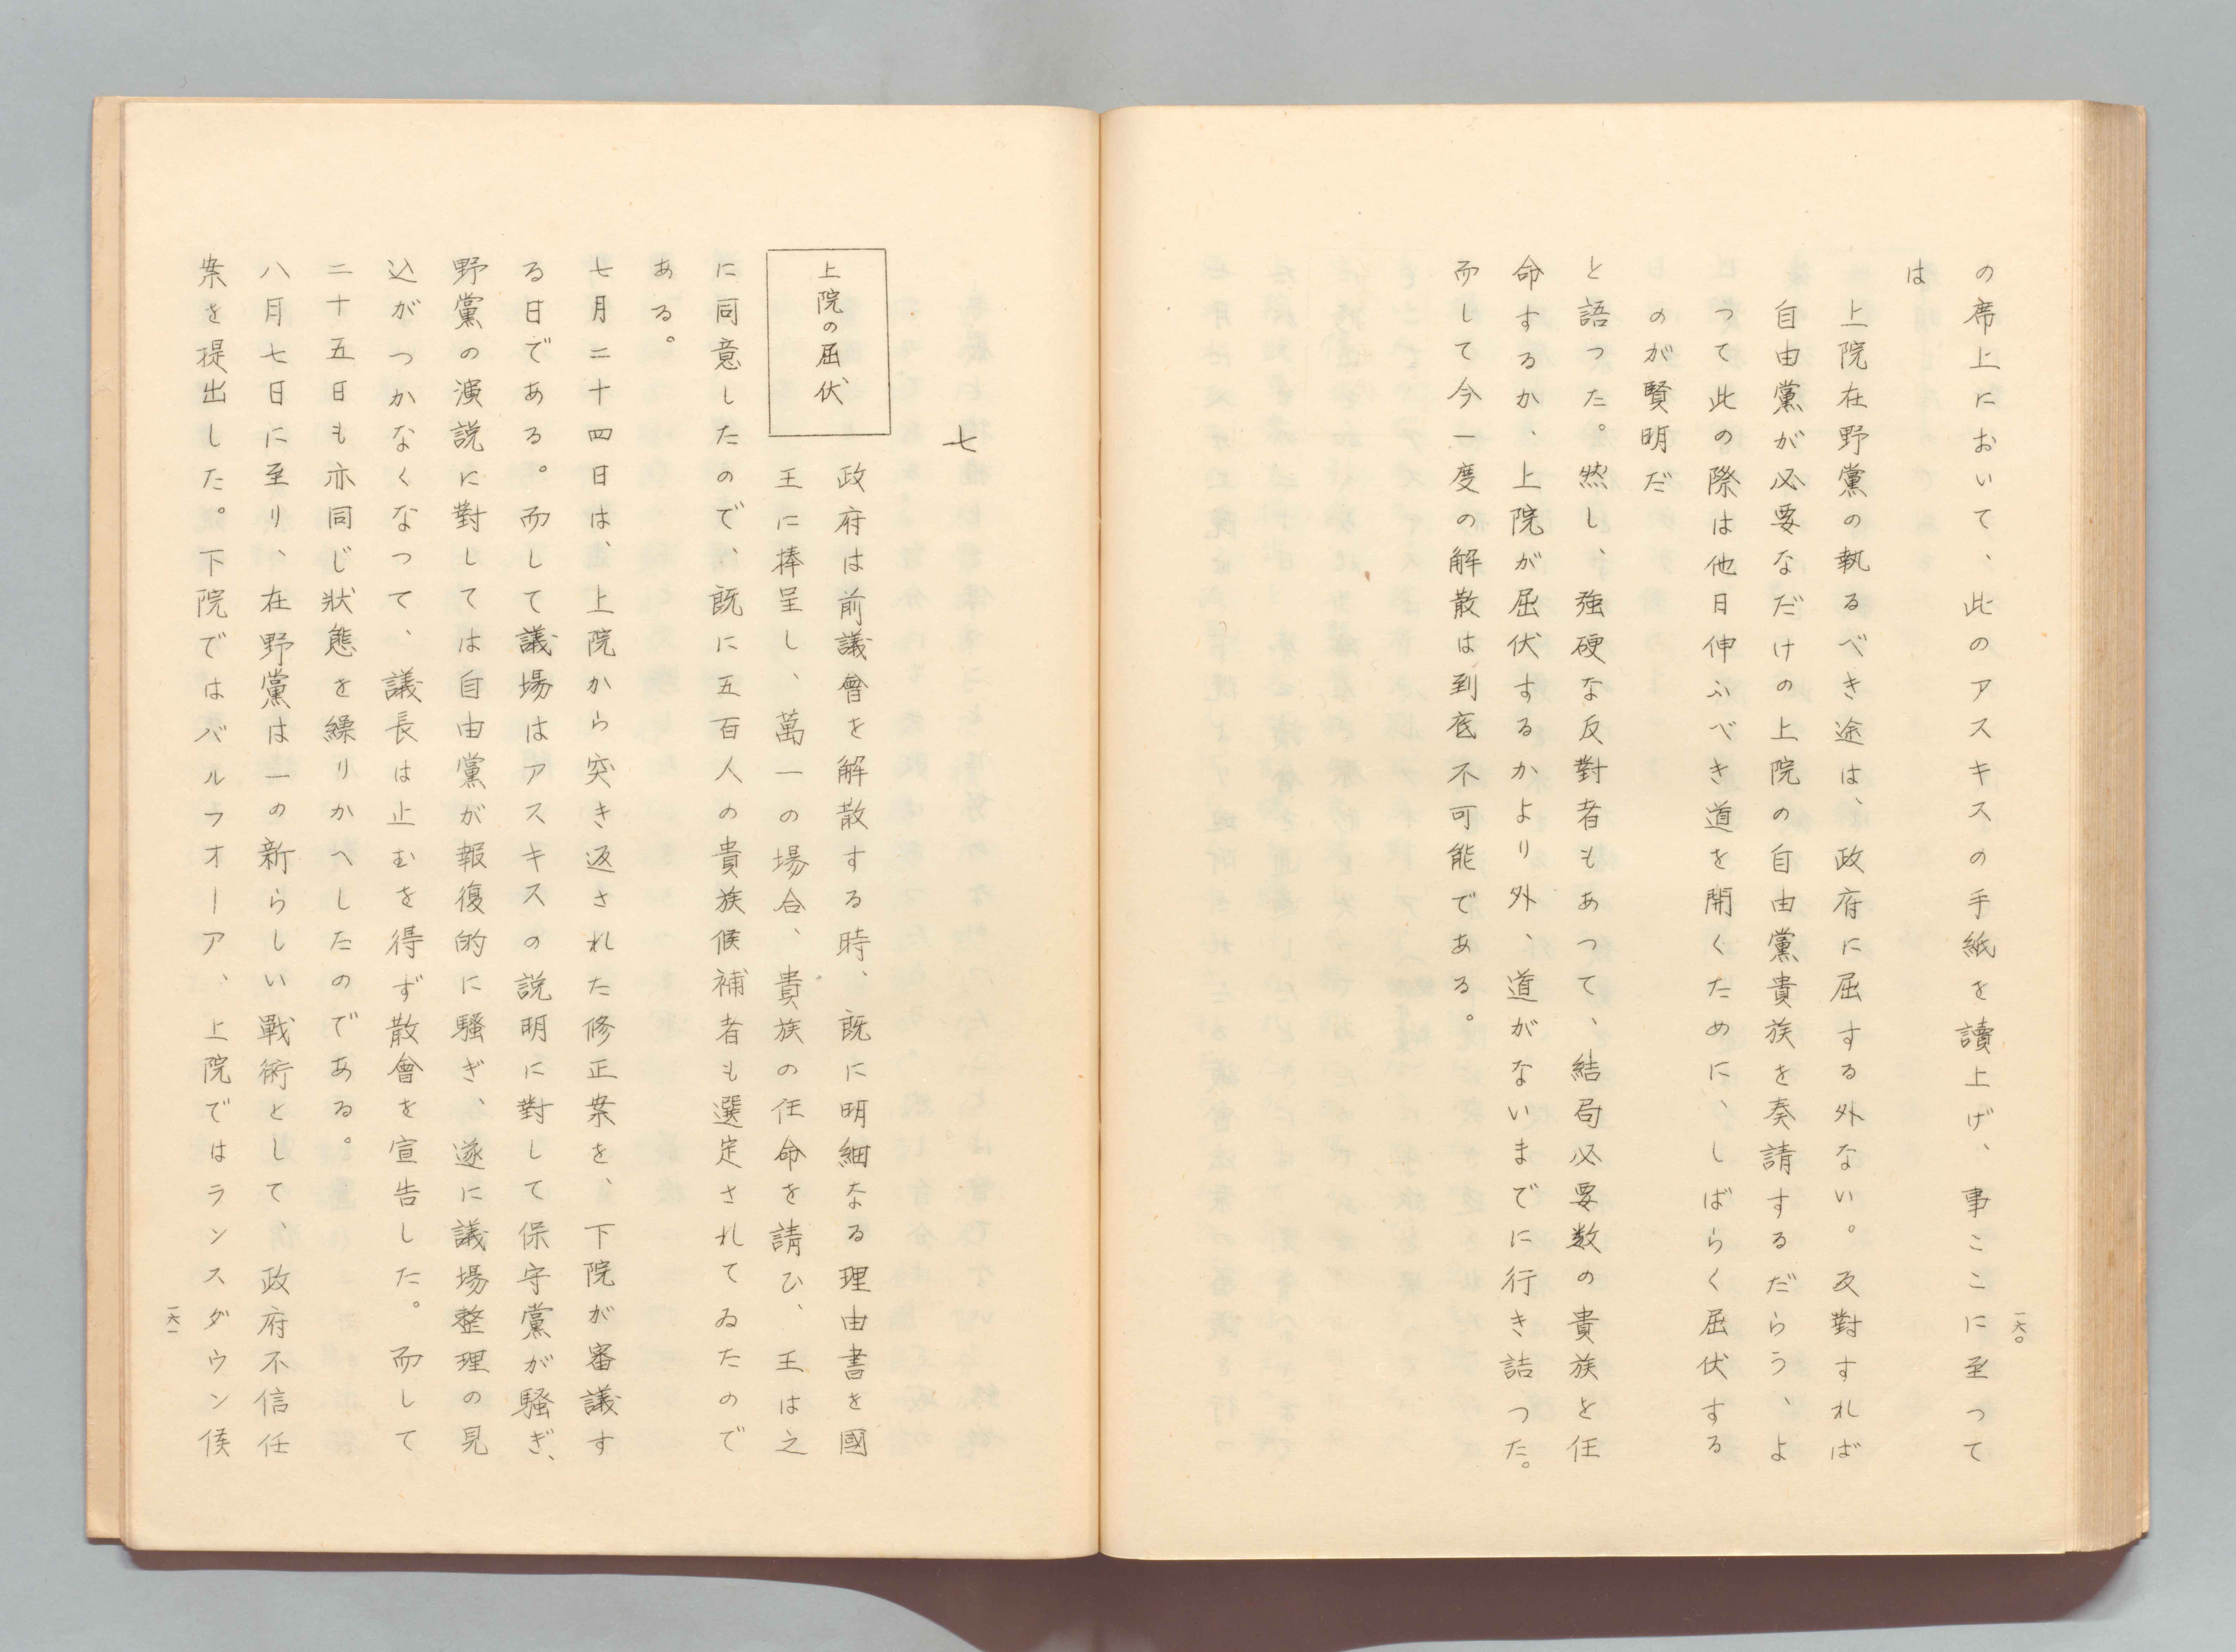 の席上において、此のアスキスの手紙を讀上げ、事ここに至つて
は
上院在野黨の執るべき途は、政府に屈する外ない。反對すれば
自由黨が必要なだけの上院の自由黨貴族を奏請するだらう、よ
つて此の際は他日伸ふべき道を開くために、しばらく屈伏する
のが賢明だ
と語つた。然し、強硬な反對者もあつて、結局必要数の貴族を任
命するか、上院が屈伏するかより外、道がないまでに行き詰つた。
而して今一度の解散は到底不可能である。
一六〇
七
上院の屈伏
政府は前議會を解散する時、既に明細なる理由書を國
王に捧呈し、萬一の場合、貴族の任命を請ひ、王は之
に同意したので、既に五百人の貴族候補者も選定されてゐたので
ある。
七月二十四日は、上院から突き返された修正案を、下院が審議す
る日である。而して議場はアスキスの説明に對して保守黨が騒ぎ、
野黨の演説に對しては自由黨が報復的に騒ぎ、遂に議場整理の見
込がつかなくなつて、議長は止むを得ず散會を宣告した。而して
二十五日も亦同じ狀態を繰りかへしたのである。
八月七日に至り、在野黨は一の新らしい戰術として、政府不信任
案を提出した。下院ではバルフオーア、上院ではランスダウン侯
一六一